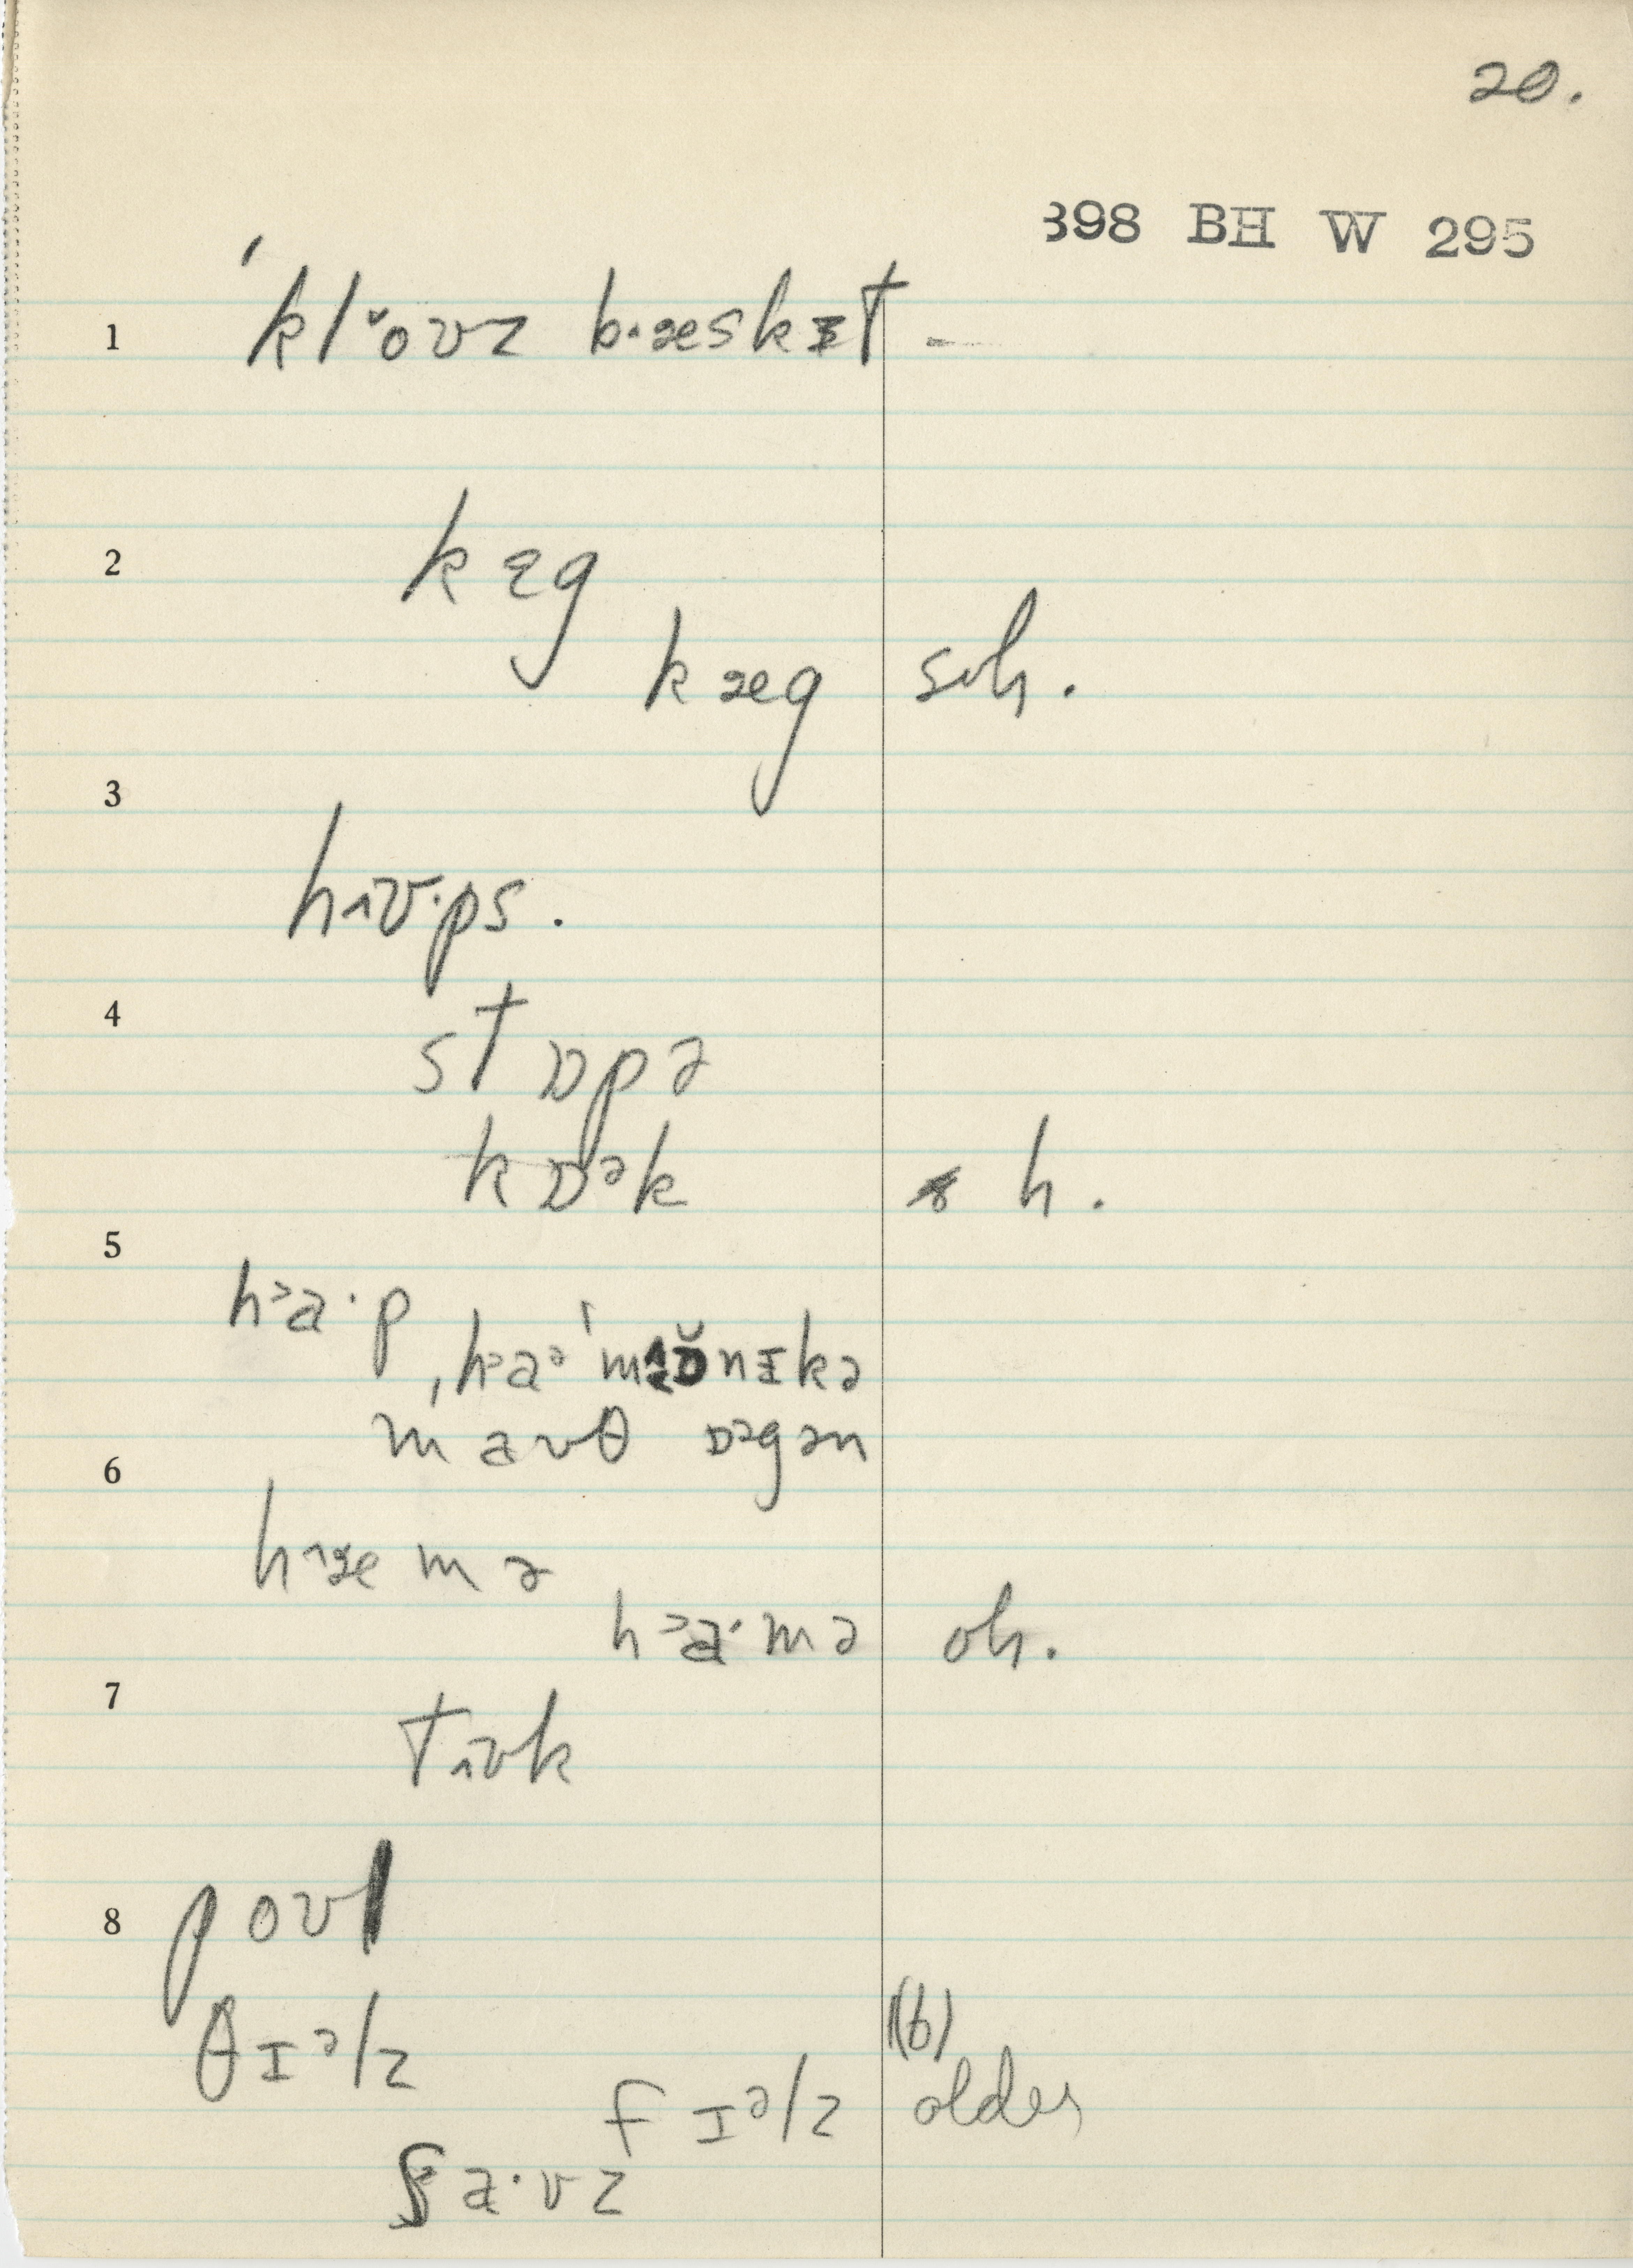 20.
398 BH W 295
1 ˈkl˅oʊz b·æskɪt -
2 kɛg
kæg soh.
3
hɪʊ·ps.
4 stɒpə
kɒᵊk h.
5
h˃a·p ˌh˃aᵊˈmɒ̆nɪkə
maʊθ ɒᵊgən
6
h˄æmə
h˃a·mə oh.
7
tɪʊk
8 poʊl
θɪᵊlz (b)
fɪᵊlz older
ʃa·vz